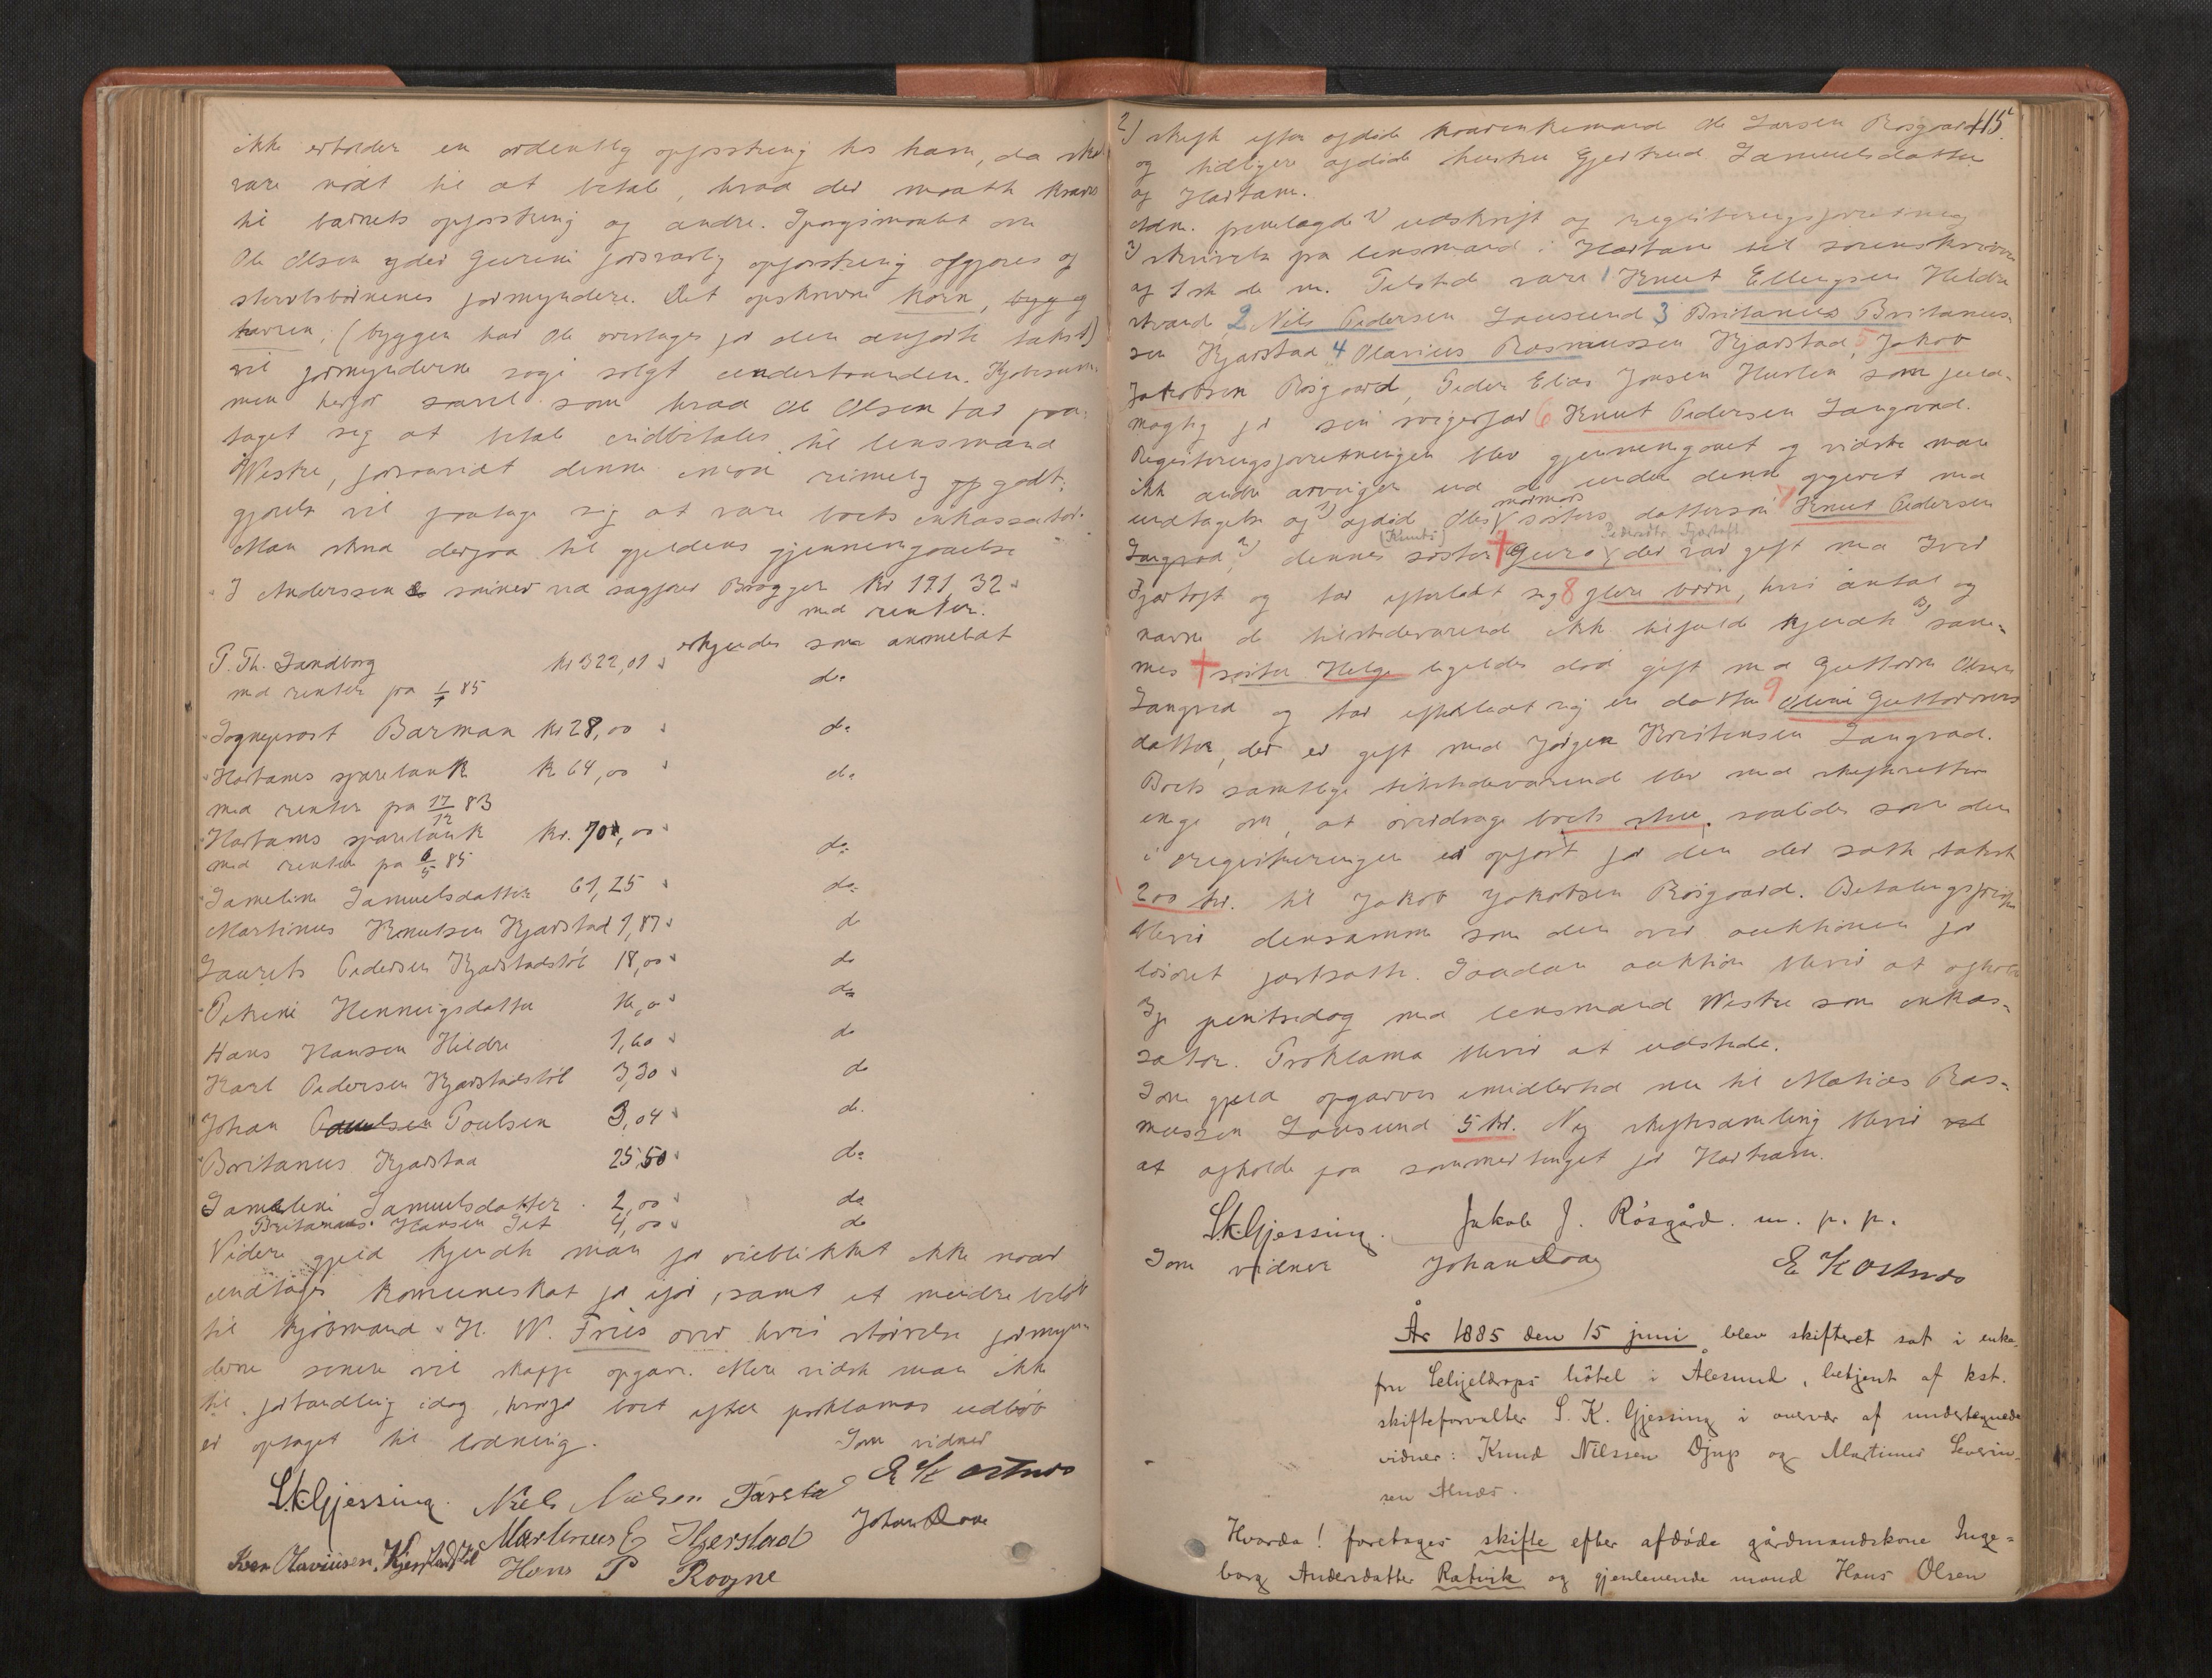 ikke erholder en ordentlig opfostring hos ham, da skal
være nødt til at betale, hvad der maatte kræves
til barnets opfostring og andre. Spørgsmaalet om
Ole Olsen yder Gurine forsvarlig opfostring afgjøres af
stervbobørnenes formyndere. Det opskrevne korn, byg og
havren, (byggen har Ole overtaget for den anførte takst)
vil formynderne søge solgt underhaanden. Kjøbesum-
men herfor saavel som hvad Ole Olsen har paa-
taget sig at betale indbetales til lensmand
Westre, forsaavidt denne imod rimelig godt-
gjørelse vil paatage sig at være boets inkassator.
Man skred derpaa til gjeldens gjennemgaaelse
J Anderssen & sønner ved sagfører Brøgger Kr 191,32
med renter.
erkjendes som anmeldt
P. Th. Sandborg kr 322,01
med renter fra 1/7 85 do
Sogneprost Barman kr 28,00 do
Harhams sparebank kr 64,00 do
med renter fra 17/12 83
Harhams sparebank kr. 70,00
med renter fra 6/5 85 do
Sameline Samuelsdatter 61,25 do
Martinus Knutsen Kjærstad 1,87 do
Laurits Pedersen Kjærstadstøl 18,00 do
Petrine Henningsdatter 16,0 do
Hans Hansen Hildre 1,60 do
Karl Pedersen Kjærstadstøl 3,30 do
Johan Poulsen 3,04 do
Britanus Kjærstad 25,50 do
Sameline Samuelsdatter 2,00 do
Britanus Hansen 4,00 do
Videre gjeld kjendte man for øieblikket ikke naar
undtages kommuneskat for ifjor, samt et mindre beløb
til kjøbmand H. W. Friis over hvis størrelse formyn-
derne senere vil skaffe opgave. Mere vidste man ikke
til forhandling idag, hvorfor boet efter proklamas udløb
er optaget til lodning.
Som vidner
S.K. Gjessing. Niels Nielsen Farstad E K Astnes
Martinus E Hjerstad Johan Doae
Iver Olaviusen, Kjerstadstøl Hans P Rogne
115
2) skifte efter afdøde kaarenkemand Ole Larsen Røsgaard
og tidligere afdøde hustru Gjertrud Samuelsdatter
af Harham.
Adm. fremlagde 1) udskrift af registreringsforretning
2) skrivelse fra lensmand i Harham til sorenskriveren
af 1ste de m. Tilstede vare 1 Knut Ellingsen Hildre
strand 2 Nils Pedersen Lausund 3 Britanus Britanus-
sen Kjærstad 4 Olavius Rasmussen Kjærstad, 5 Jakob
Jakobsen Røsgaard, Peder Elias Jonsen Hurlen som fuld-
mægtig for sin svigerfar 6 Knut Pedersen Langvad.
Registreringsforretningen blev gjennemgaaet og vidste man
ikke andre arvinger end de under denne opgivet med
undtagelse af 1) afdøde Oles mormors søsters dattersøn 7 Knut Pedersen
Langvad, 2) dennes (Knuts) søster Guro Pedersdtr. Fjærtoft der var gift med Iver
Fjærtoft og har efterladt sig 8 flere børn, hvis antal og
navne de tilstedeværende ikke tilfulde kjendte 3) sam-
mes søster Helge ligeledes død gift med Guttorm Olsen
Langvad og har efterladt sig en datter 9 Oline Guttorms
datter, der er gift med Jørgen Kristensen Langvad.
Boets samtlige tilstedeværende blev med skifteretten
enige om, at overdrage boets stue, saaledes som den
i registreringen er opført for den der satte takst
200 kr. til Jakob Jakobsen Røsgaard. Betalingsfristen
bliver densamme som den over auktionen for
løsøret fastsatte. Saadan auktion bliver at afholde
3je pintsedag med lensmand Westre som inkas-
sator. Proklama bliver at udstede.
Som gjeld opgaves imidlertid nu til Matias Ras-
mussen Lausund 5 kr. Ny skiftesamling bliver
at afholde paa sommertinget for Harham.
S.K. Gjessing. Jakob J. Røsgård. m. p. p.
Som vidner Johan Doae E K Astnes
År 1885 den 15 juni blev skifteret sat i enke-
fru Schjeldrops hôtel i Ålesund, betjent af kst.
skifteforvalter S. K. Gjessing i overvær af undertegnede
vidner: Knud Nilssen Djup og Martinus Severin-
sen Alnæs.
Hvorda! foretoges skifte efter afdøde gårdmandskone Inge-
borg Andersdatter Ratvik og gjenlevende mand Hans Olsen